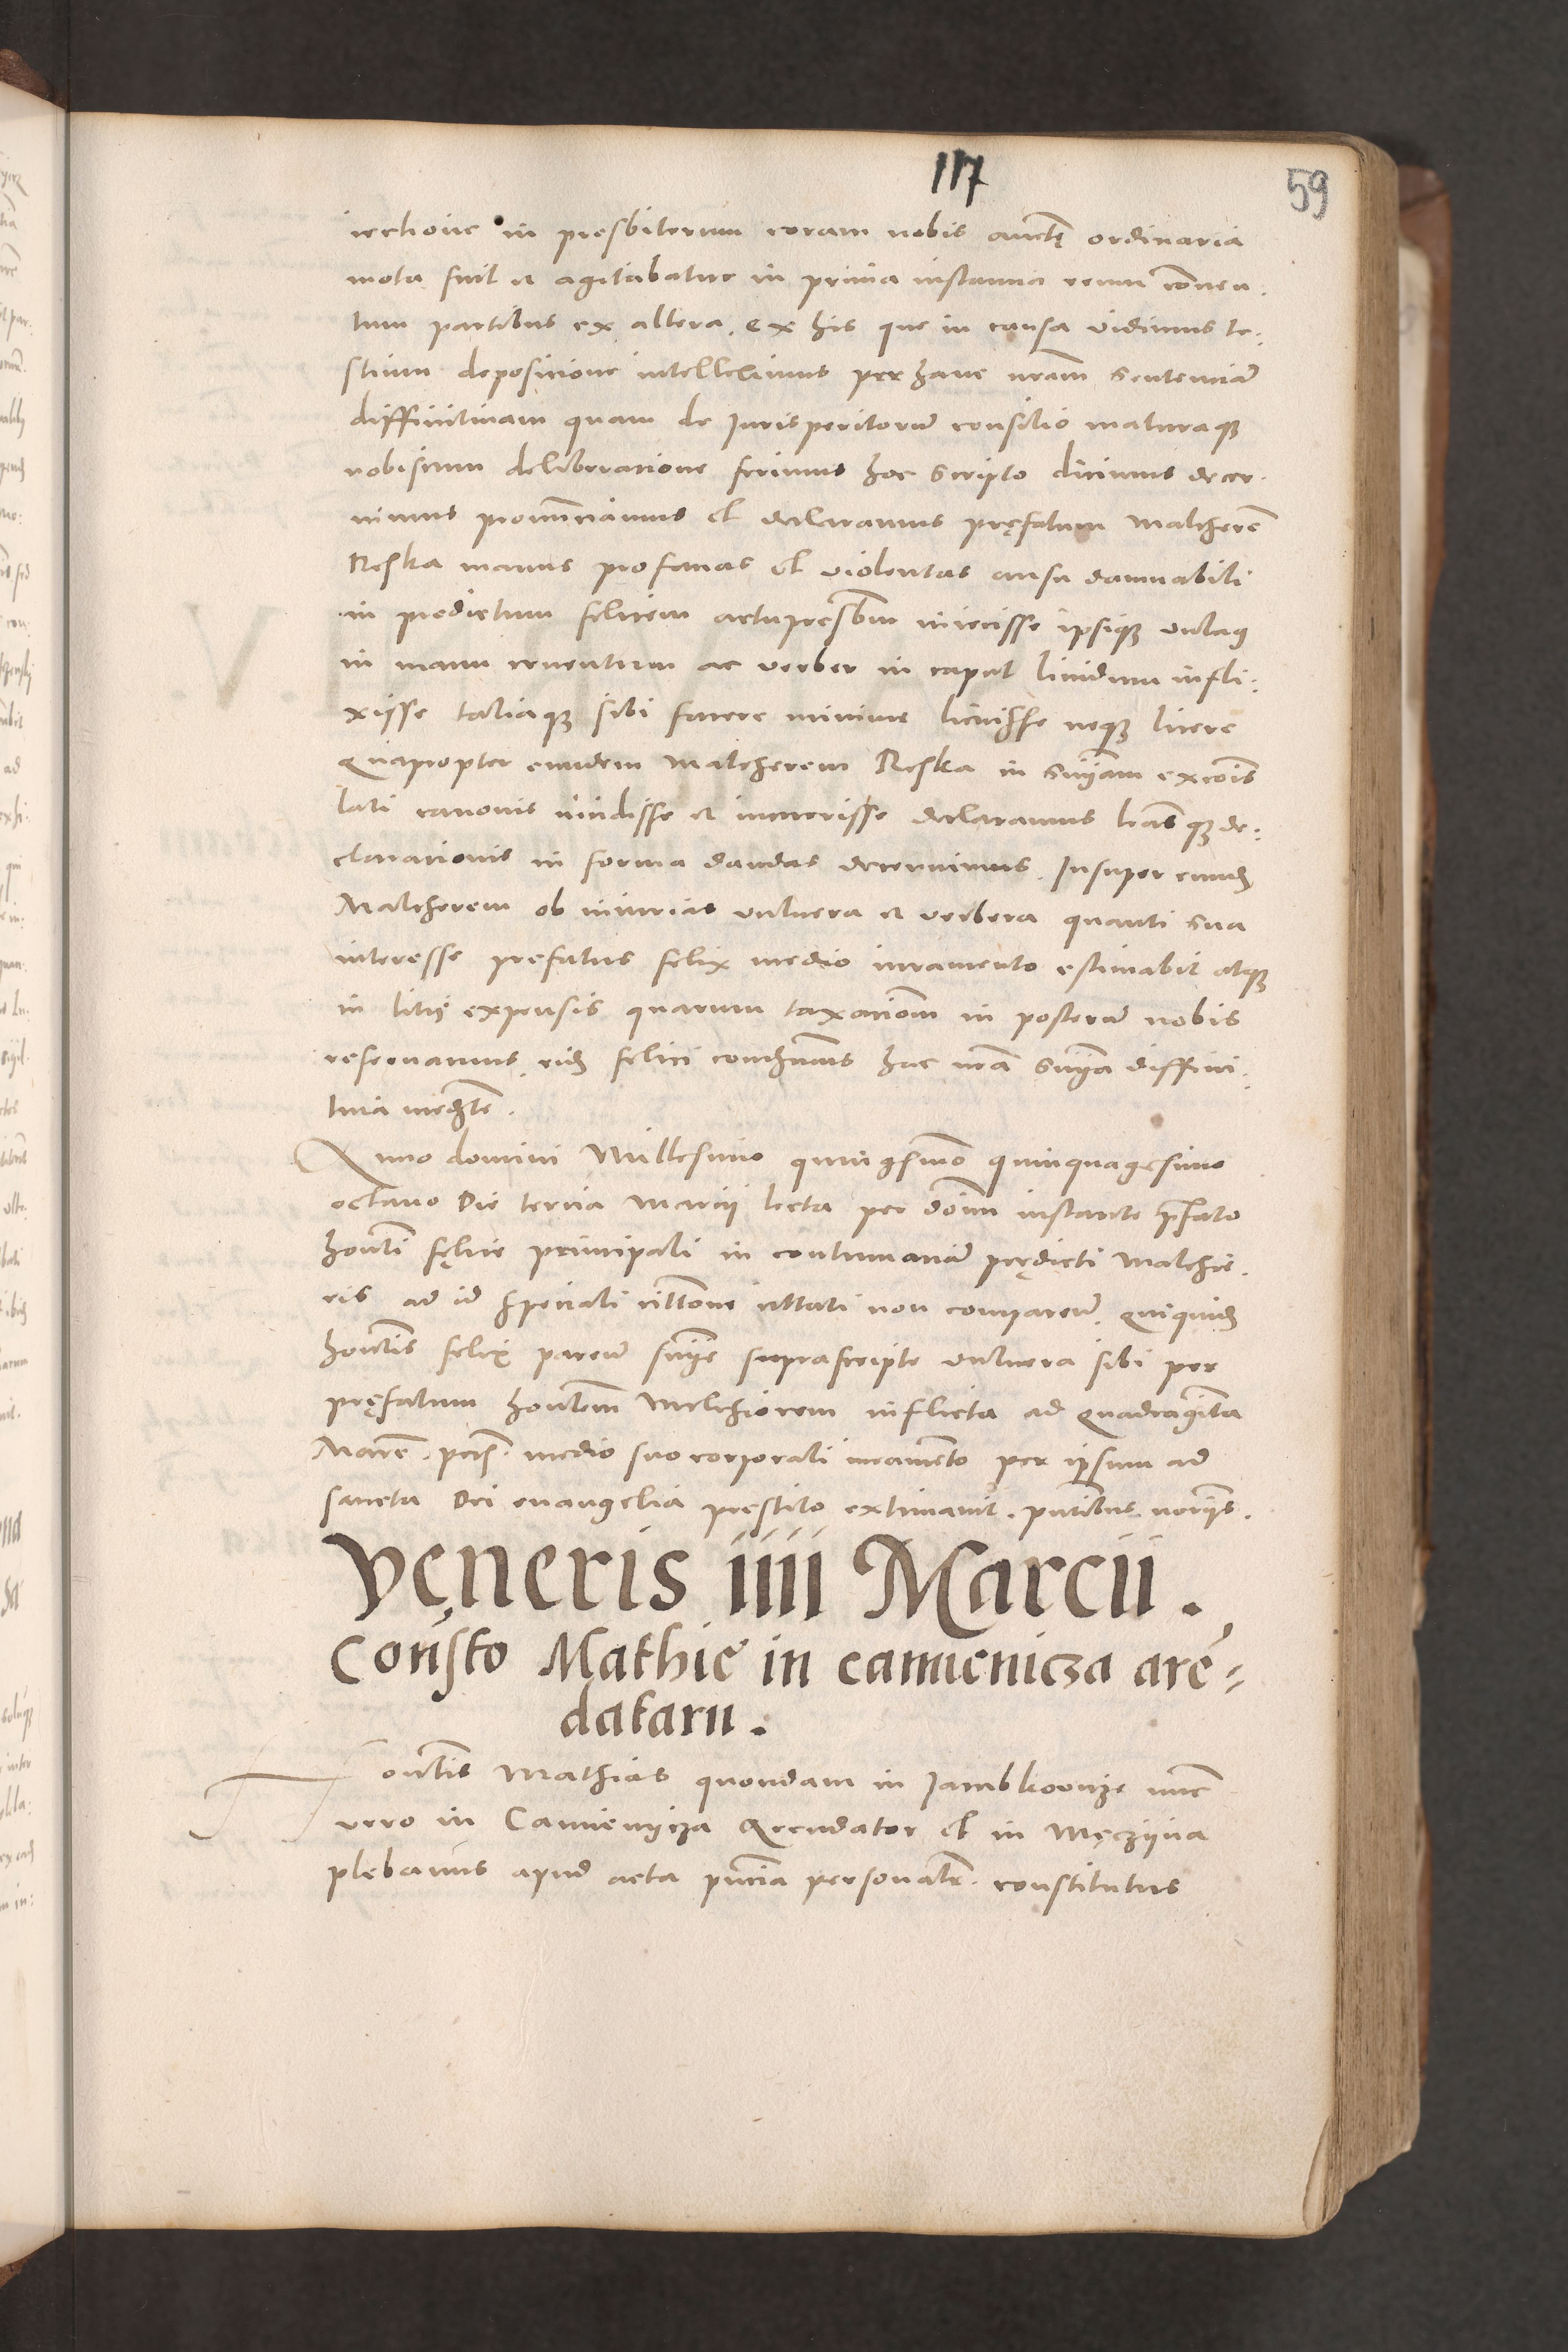 117
59
iectione in presbiterum coram nobis aucte ordinaria
mota fuit et agitabatur in prima instancia reum conuen-
tum partibus ex altera. Ex his que in causa vidimus te-
stium deposicione intelleximus per hanc nram sentenciã
diffinitiuam quam de Jurisperitorũ consilio maturaqz
nobiscum deliberacione ferimus hoc scripto dicimus decer-
nimus pronunciamus et declaramus pręfatum Malcherẽ
Reska manus profanas et violentas ausu damnabili
in predictum felicem actu presbrm iniecisse ipsiqz vulnus
in manu cruentum ac verber in caput liuidum infli-
xisse taliaqz sibi facere minime licuisse neqz licere
Quapropter eundem Malcherem Reska in sniam excois
lati canonis incidisse et incurrisse declaramus lrasqz de-
claracionis in forma dandas decernimus. Insuper eundẽ
Malcherem ob iniurias vulnera et verbera quanti sua
interesse prefatus felix medio iuramento estimabit atqz
in litis expensis quarum taxacionem in posterũ nobis
reseruamus eidẽ felici condemnamus hac nra snia diffini-
tiua mediante.
Anno domini Millesimo quingẽsimo quinquagesimo
octauo Die tercia Marcii lecta per domin instante prefato
honẽsti fęlice principali in contumaciã pędicti Malche-
ris ad id speciali cittone cittati non comparen. Quiquidẽ
honẽstis felix paren snie suprascripte vulnera sibi per
pręfatum honestem Melchiorem inflicta ad quadraginta
Marc. pecẽ. medio suo corporali iuramento per ipsum ad
sancta Dei euangelia prestito extimauit. pñtibus noriis.
Veneris iiii Marcii.
Constõ Mathie in camienicza arẽ=
datarii.
Honẽstis Mathias quondam in Jambkowycze nunc
vero in Camienycza Arendator et in Męczyna
plebanus apud acta pñcia personalr. constitutus